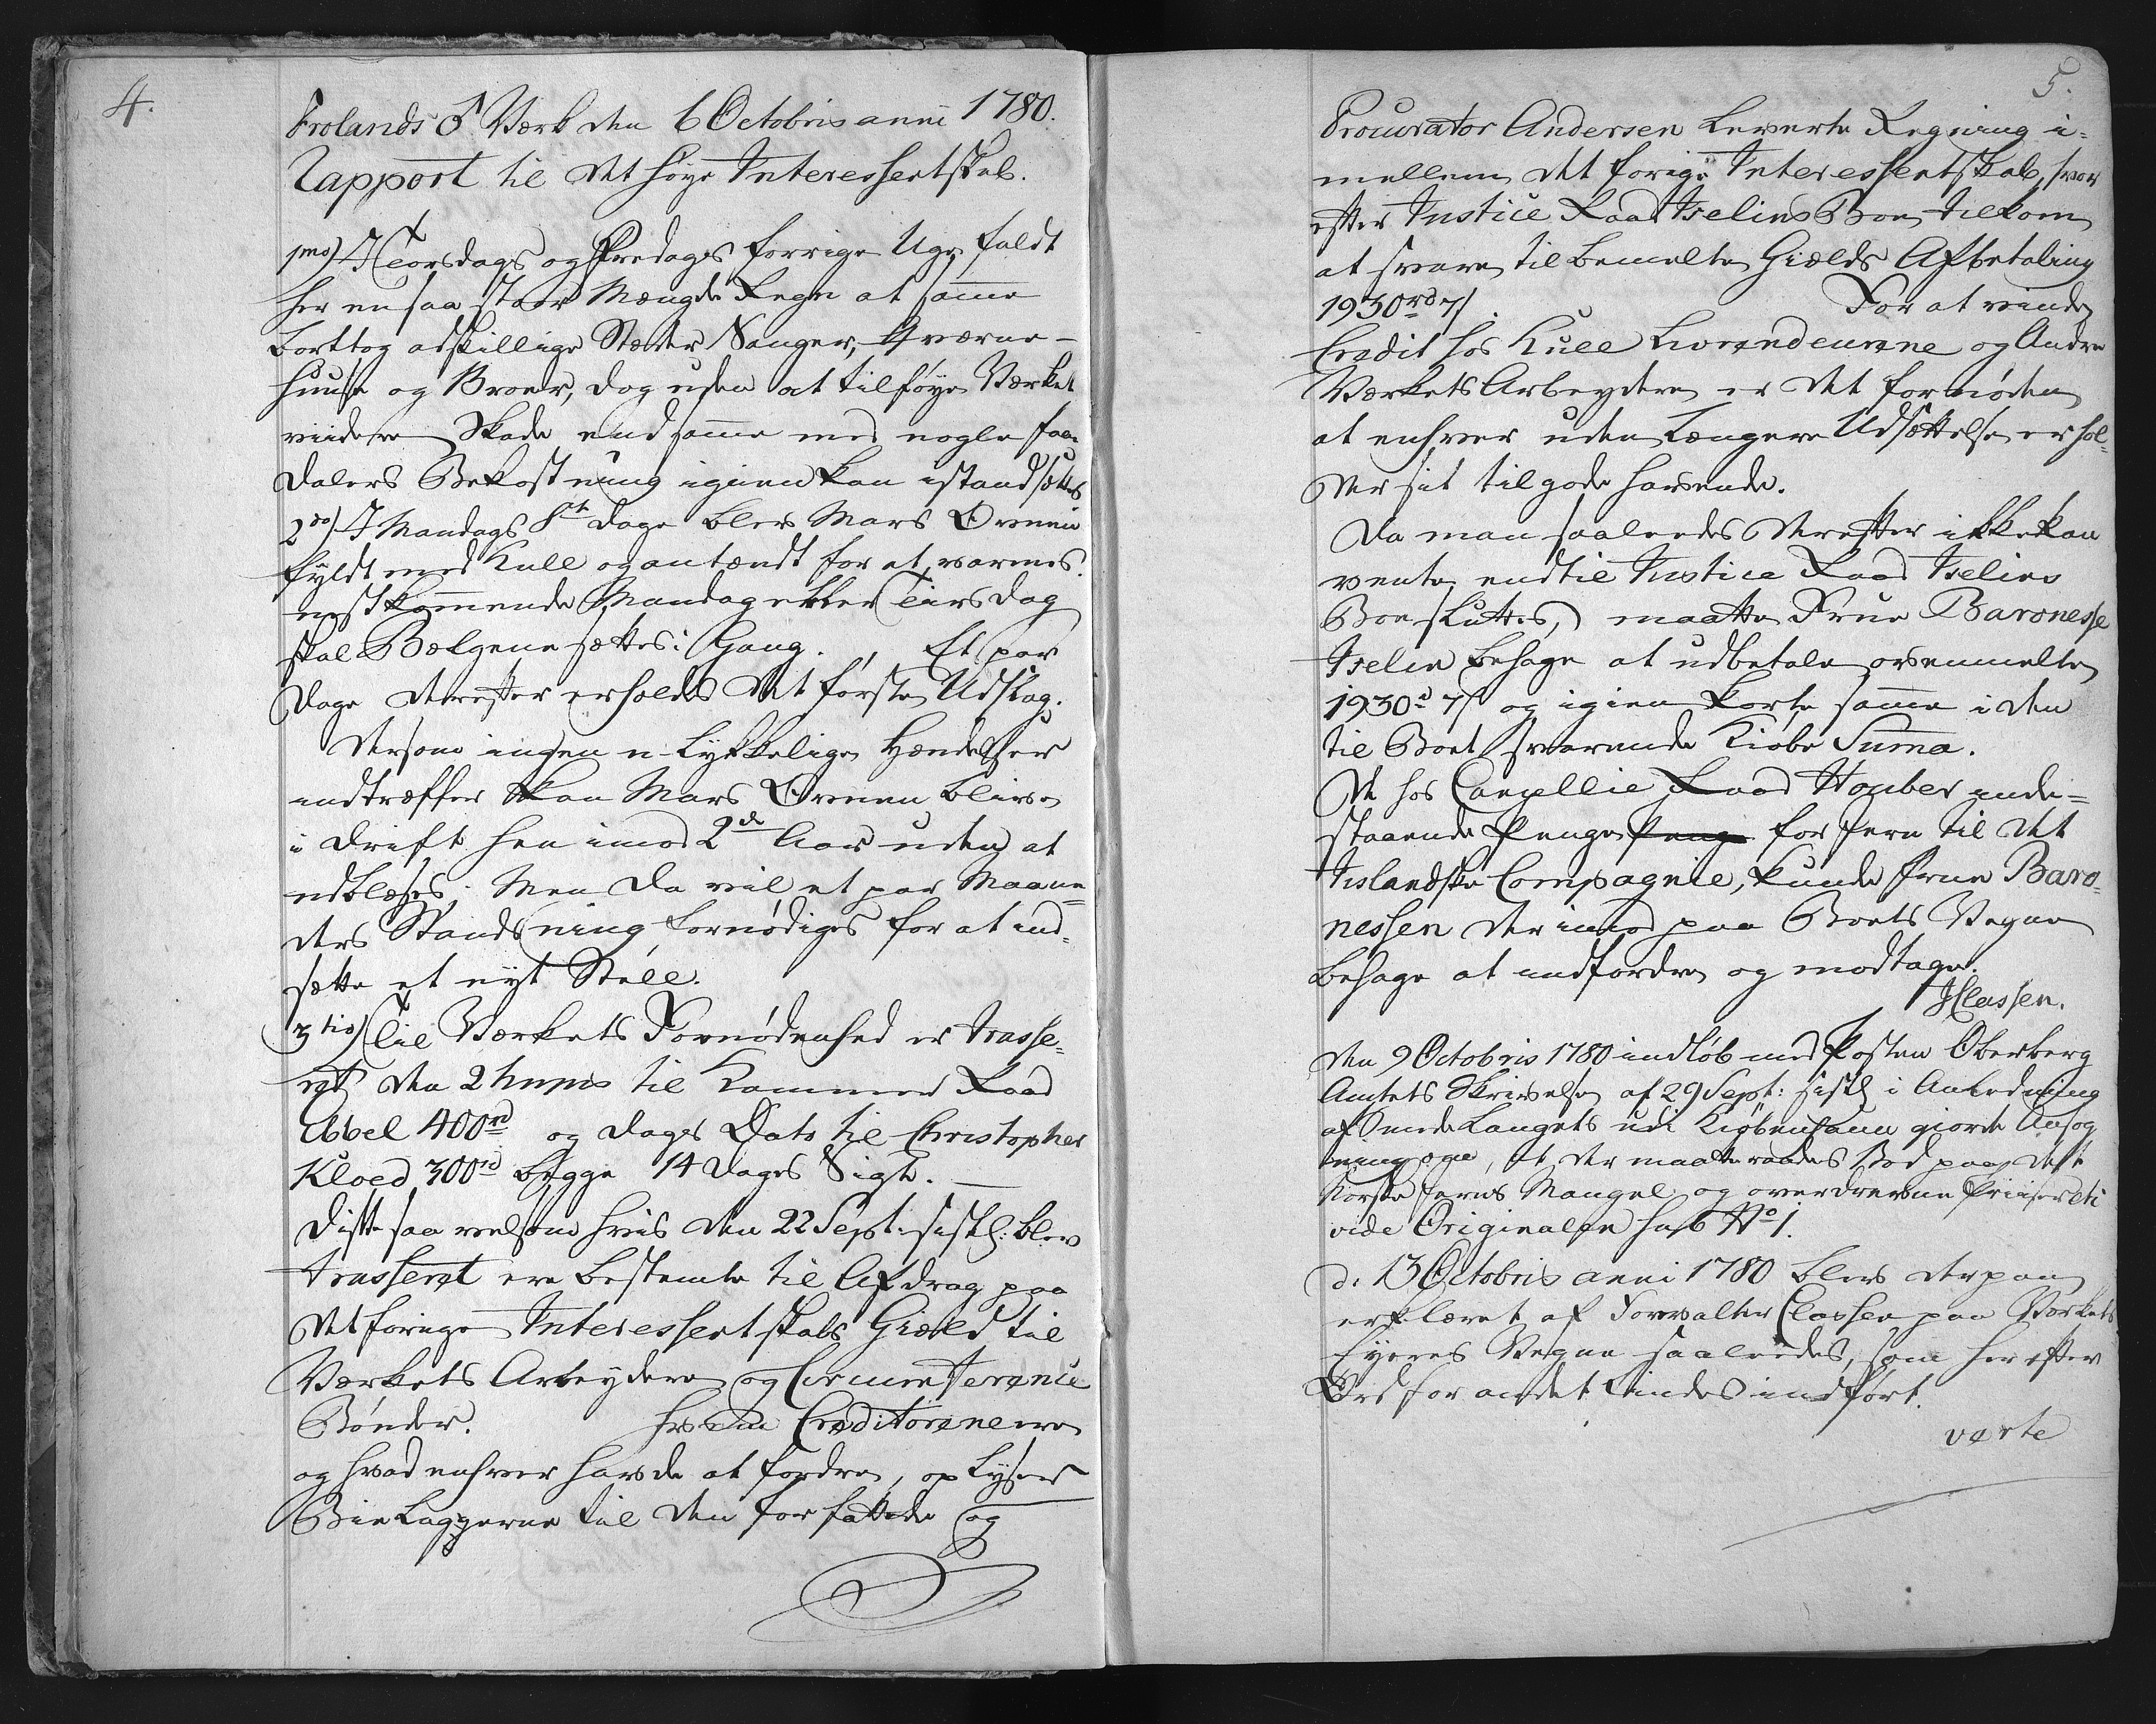 4.
Frolands ♂ Værk den 6 Octobris anni 1780.
Rapport til det høye Interessentskab.
1mo) I Torsdags og Fredags forrige Uge faldt
her en saa stoor Mængde Regn at samme
borttog adskillige Stæder Sauger, Qværne-
huuse og Broer, dog uden at tilføye Værket
viidere Skade end samme med nogle faa
Dalers Bekostning igien kan istandsættes
2do) I Mandags 8te Dage blev Mars Ovnen
fyldt med Kull og antændt for at varmes.
nestkommende Mandag eller Tiirsdag
skal Bælgene sættes i Gang. Et par
Dage derefter erholdes det første Udslag.
Dersom ingen u-lykkelige Hændelser
indtræffer kan Mars Ovnen blive
i Drift hen imod 2de Aar uden at
udblæses. Men da vil et par Maane-
ders Standsning fornødiges for at ind-
sætte et nyt Stell.
3tio) Til Værkets Fornødenhed er trasse-
ret den 2 hujus til Kammer Raad
Abbel 400rd og Dags Dato til Christopher
Kloed 300rd begge 14 Dages Sigt.
Disse saa velsom hvis den 22 Sept: sistl: blev
trasseret ere bestemte til Afdrag paa
det forige Interessentskabs Gield til
Værkets Arbeydere og Circumference
Bønder. hvem Creditorene ere
og hvad enhver havde at fordre, oplyser
Bielaggerne til den forfattede og
5.
Procurator Andersen leverte Regning i-
mellem det forige Interessentskab, hvor
efter Justice Raad Iselins Boe tilkom
at svare til bemelte Gields Afbetaling
1930rd 7s. For at vinde
Credit hos Kull Leverandeurene og Andre
Værkets Arbeydere er det fornøden
at enhver uden længere Udsættelse erhol-
der sit tilgode havende.
Da man saaledes derefter ikke kan
vente endtil Justice Raad Iselins
Boe sluttes, maatte Frue Baronesse
Iselin behage at udbetale ovenmelte
1930rd 7s og igien korte samme i den
til Boet svarende Kiøbe Summa.
De hos Cancellie Raad Houber inde-
staaende Penge Penge for Jern til det
Islandske Compagnie, kunde Frue Baro-
nessen derimod paa Boets Vegne
behage at indfordre og modtage.
JClassen.
Den 9 Octobris 1780 indløb med Posten Oberberg
Amtets Skrivelse af 29 Sept: sistl: i Anledning
af Smede Laugets udi Kiøbenhavn giorte Ansøg
ning om, at der maatte raades Bod paa det
Norske Jerns Mangel og overdrevne Priiser etc
vide Originalen sub No 1.
d. 13 Octobris anni 1780 blev derpaa
erklæret af Forvalter Classen paa Værkets
Eyeres Vegne saaledes, som herefter
Ord for andet findes indført.
verte